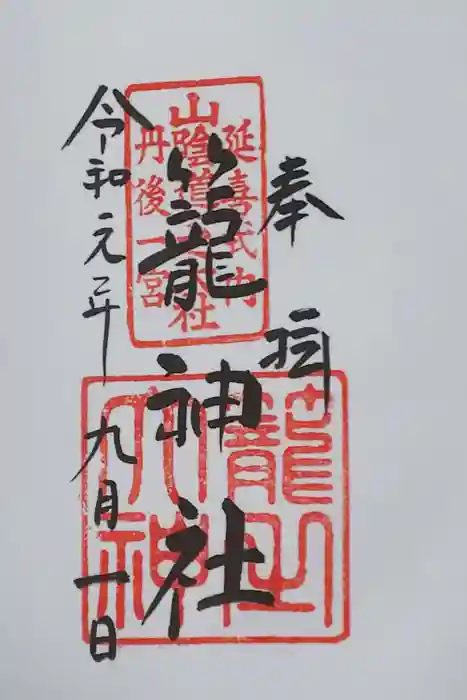 奉拝
籠神社
令和元年九月一日
延喜式内
山陰道一之大社
丹後一宮
籠之大神